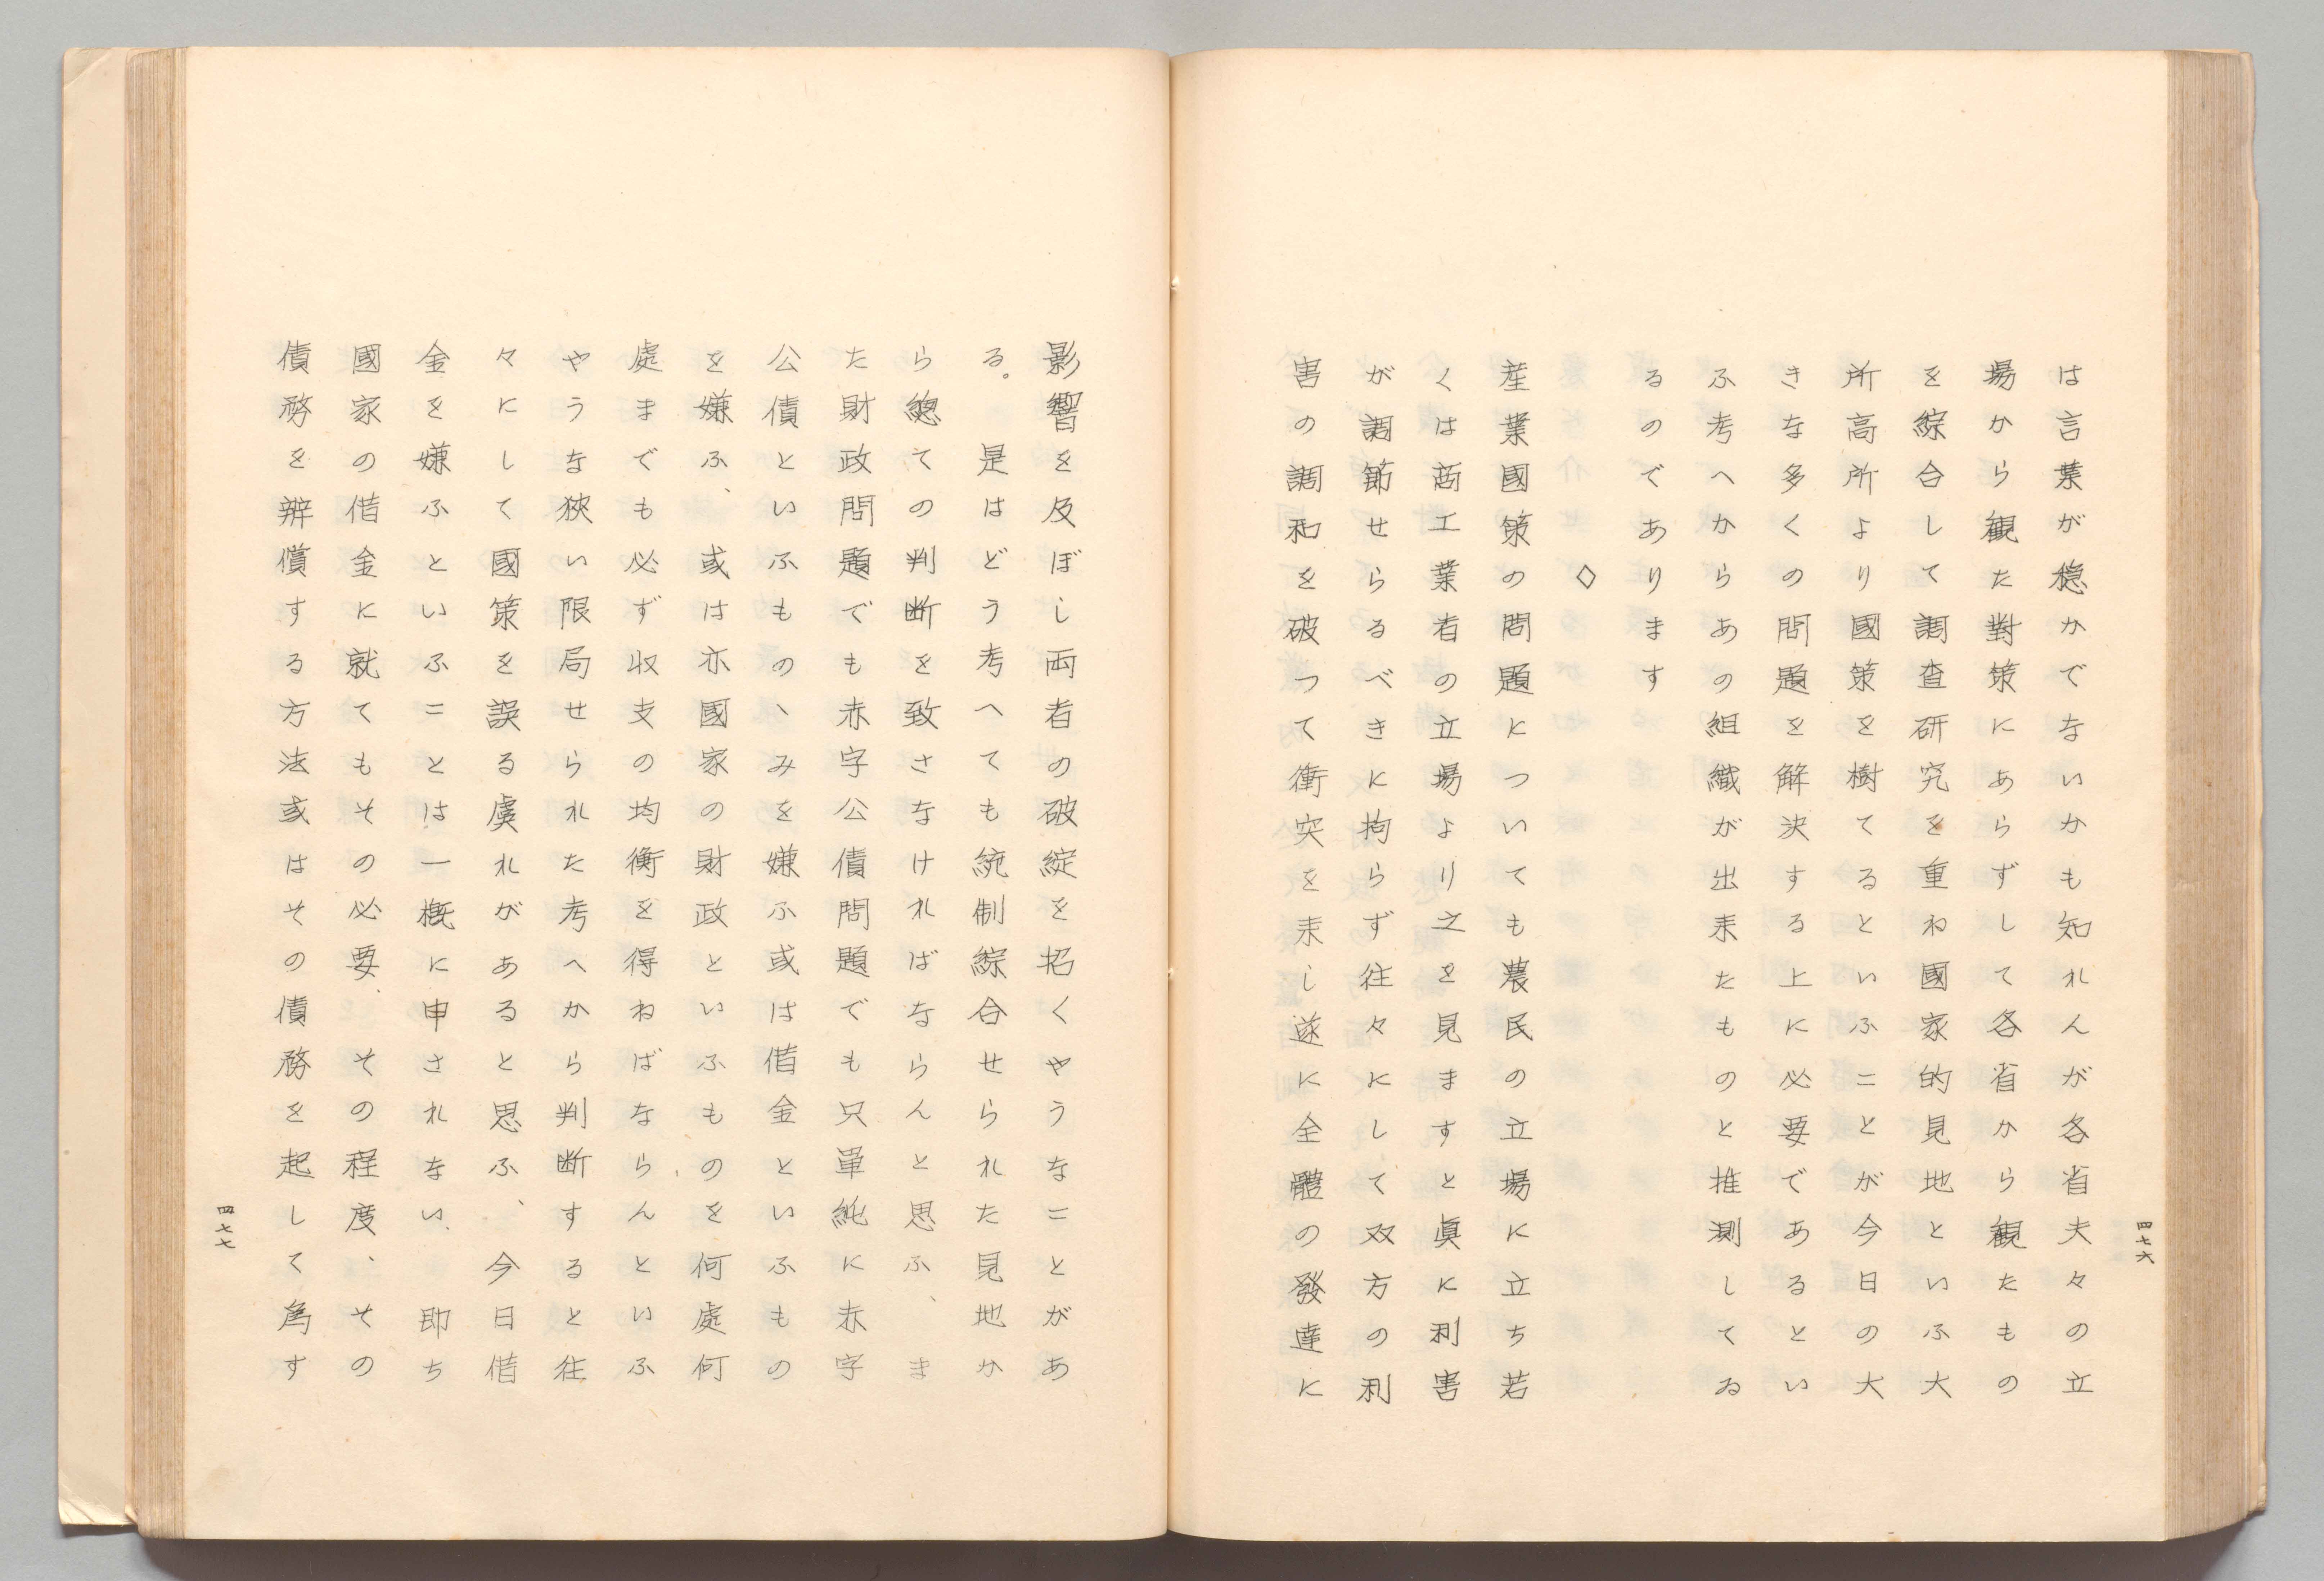 は言葉が穏かでないかも知れんが各省夫々の立
場から観た對策にあらずして各省から観たもの
を綜合して調査研究を重ね國家的見地といふ大
所高所より國策を樹てるといふことが今日の大
きな多くの問題を解決する上に必要であるとい
ふ考へからあの組織が出来たものと推測してゐ
るのであります
◇
産業國策の問題についても農民の立場に立ち若
くは商工業者の立場より之を見ますと眞に利害
が調節せらるべきに拘らず往々にして双方の利
害の調和を破つて衝突を来し遂に全體の發達に
四七六
影響を及ぼし両者の破綻を招くやうなことがあ
る。是はどう考へても統制綜合せられた見地か
ら總ての判断を致さなければならんと思ふ、ま
た財政問題でも赤字公債問題でも只単純に赤字
公債といふものヽみを嫌ふ或は借金といふもの
を嫌ふ、或は亦國家の財政といふものを何處何
處までも必ず収支の均衡を得ねばならんといふ
やうな狹い限局せられた考へから判断すると往
々にして國策を誤る虞れがあると思ふ、今日借
金を嫌ふといふことは一概に申されない、即ち
國家の借金に就てもその必要、その程度、その
債務を辨償する方法或はその債務を起して為す
四七七